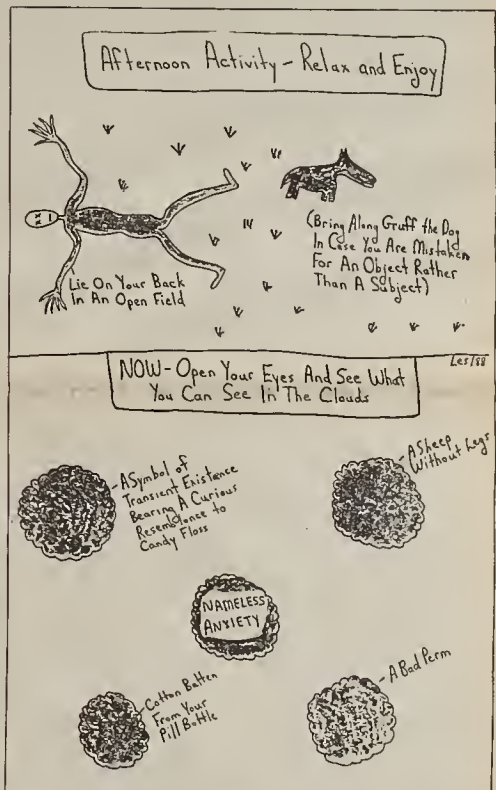 Afternoon Activity - Relax and Enjoy
Lie On Your Back
In An Open Field
(Bring Along Gruff the Dog
In Case You Are Mistaken
For An Object Rather
Than A Subject)
Les/88
NOW - Open Your Eyes And See What
You Can See In The Clouds
- A Symbol of
Transient Existence
Bearing A Curious
Resemblance to
Candy Floss
- A Sheep
Without Legs
NAMELESS
ANXIETY
- Cotton Batten
From Your
Pill Bottle
- A Bad Perm